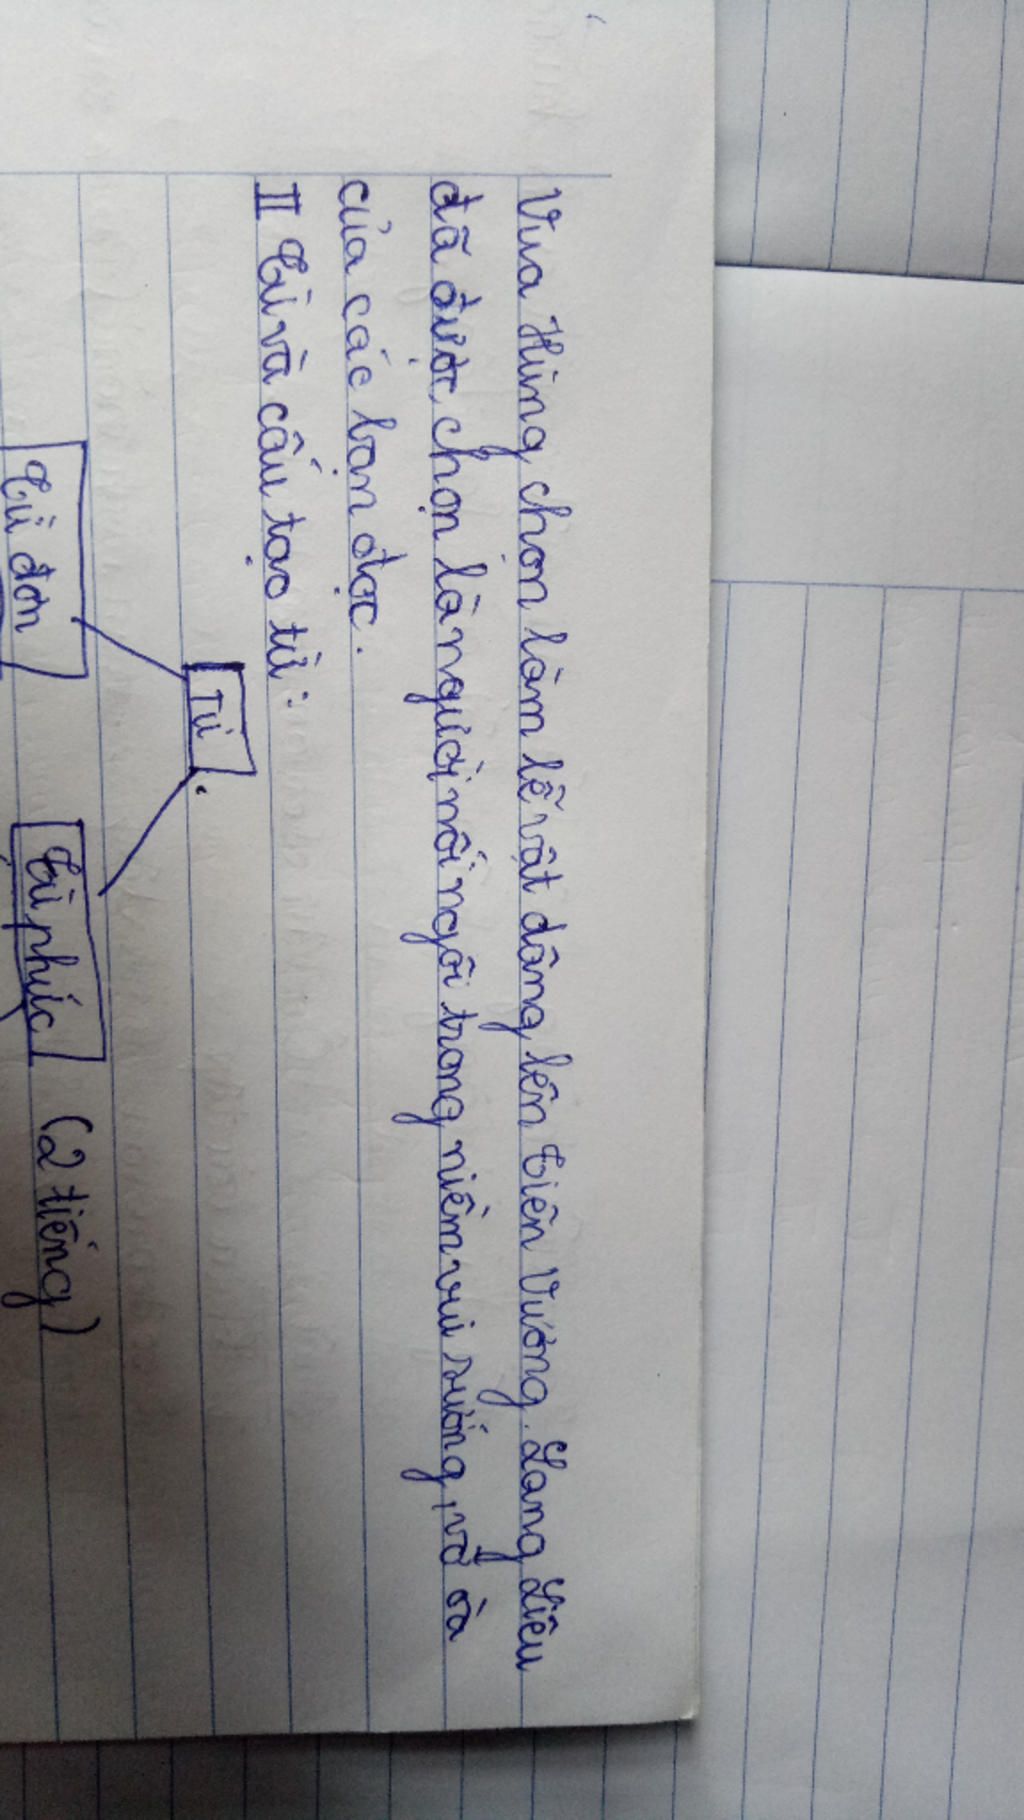 Vua Hùng chọn làm lễ vật dâng lên Tiên Vương. Lang Liêu
đã được chọn là người nối ngôi trong niềm vui sướng, vỡ òa
của các bạn đọc.
II Từ và cấu tạo từ:
Từ.
Từ đơn Từ phức (2 tiếng)